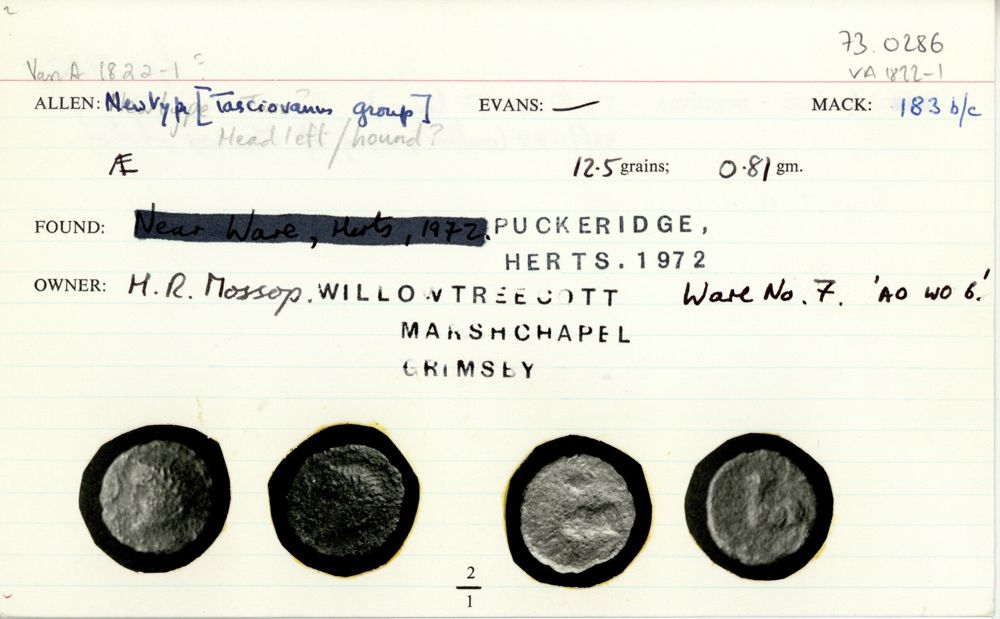 73.0286
Van A 1822-1 ?
VA 1822-1
ALLEN: New type [Tasciovanus group] EVANS: — MACK: 183 b/c
Head left / hound?
Æ 12.5 grains; 0.81 gm.
FOUND: Near Ware, Herts, 1972. PUCKERIDGE,
HERTS. 1972
OWNER: H. R. Mossop. WILLOWTREE COTT Ware No. 7. 'AO WO 6.'
MARSHCHAPEL
GRIMSBY
2
1